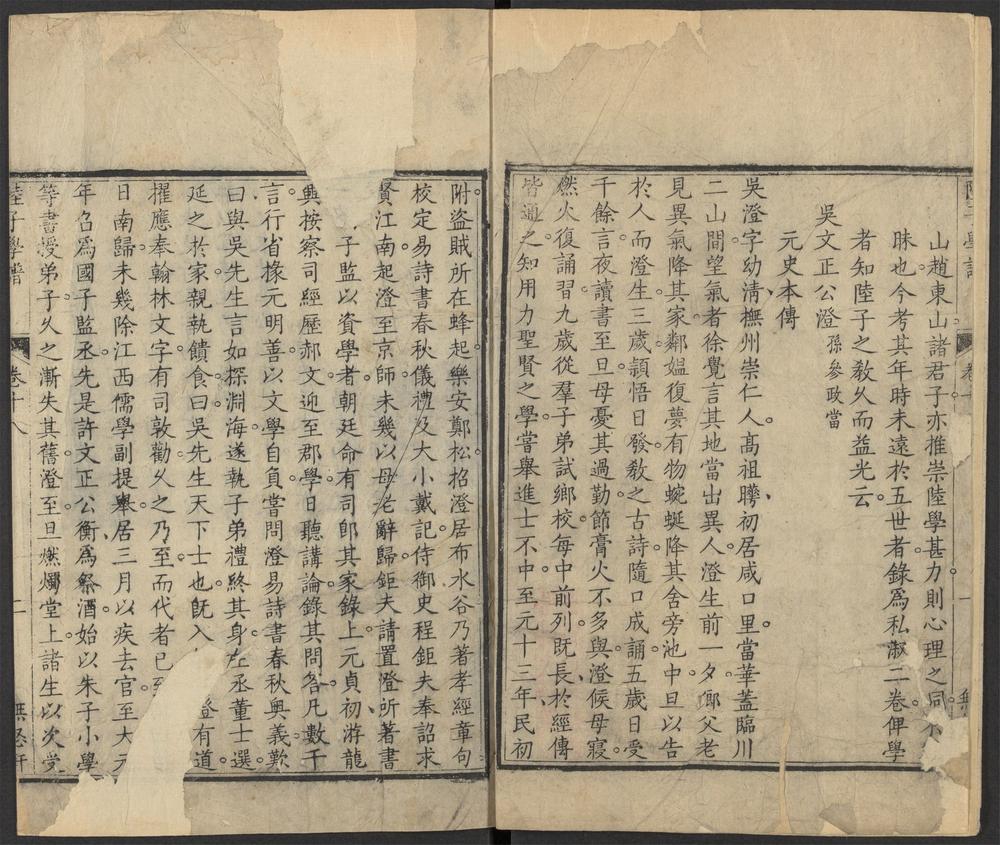 山趙東山諸君子亦推崇陸學甚力則心理之同
昧也今考其年時未遠於五世者錄爲私淑二卷俾學
者知陸子之教久而益光云
吳文正公澄 孫參政當
元史本傳
吳澄字幼淸撫州崇仁人髙祖曄初居咸口里當華蓋臨川
二山間望氣者徐覺言其地當出異人澄生前一夕鄉父老
見異氣降其家鄰媼復夢有物蜿蜒降其舍旁池中旦以告
於人而澄生三歲頴悟日發教之古詩隨口成誦五歲日受
千餘言夜讀書至旦母憂其過勤節膏火不多與澄候母寢
燃火復誦習九歲從羣子弟試鄉校每中前列既長於經傳
皆通之知用力聖賢之學嘗舉進士不中至元十三年民初
附盜賊所在蜂起樂安鄭松招澄居布水谷乃著孝經章句
校定易詩書春秋儀禮及大小戴記侍御史程鉅夫奉詔求
賢江南起澄至京師未幾以母老辭歸鉅夫請置澄所著書
子監以資學者朝廷命有司卽其家錄上元貞初游龍
興按察司經歷郝文迎至郡學日聽講論錄其問答凡數千
言行省掾元明善以文學自負嘗問澄易詩書春秋奧義歎
曰與吳先生言如探淵海遂執子弟禮終其身左丞董士選
延之於家親執饋食曰吳先生天下士也旣入
澄有道
擢應奉翰林文字有司敦勸久之乃至而代者已
日南歸未幾除江西儒學副提舉居三月以疾去官至大元
年召爲國子監丞先是許文正公衡爲祭酒始以朱子小學
等書授弟子久之漸失其舊澄至旦燃爥堂上諸生以次受
陸子學譜
卷十八
二
無怒軒